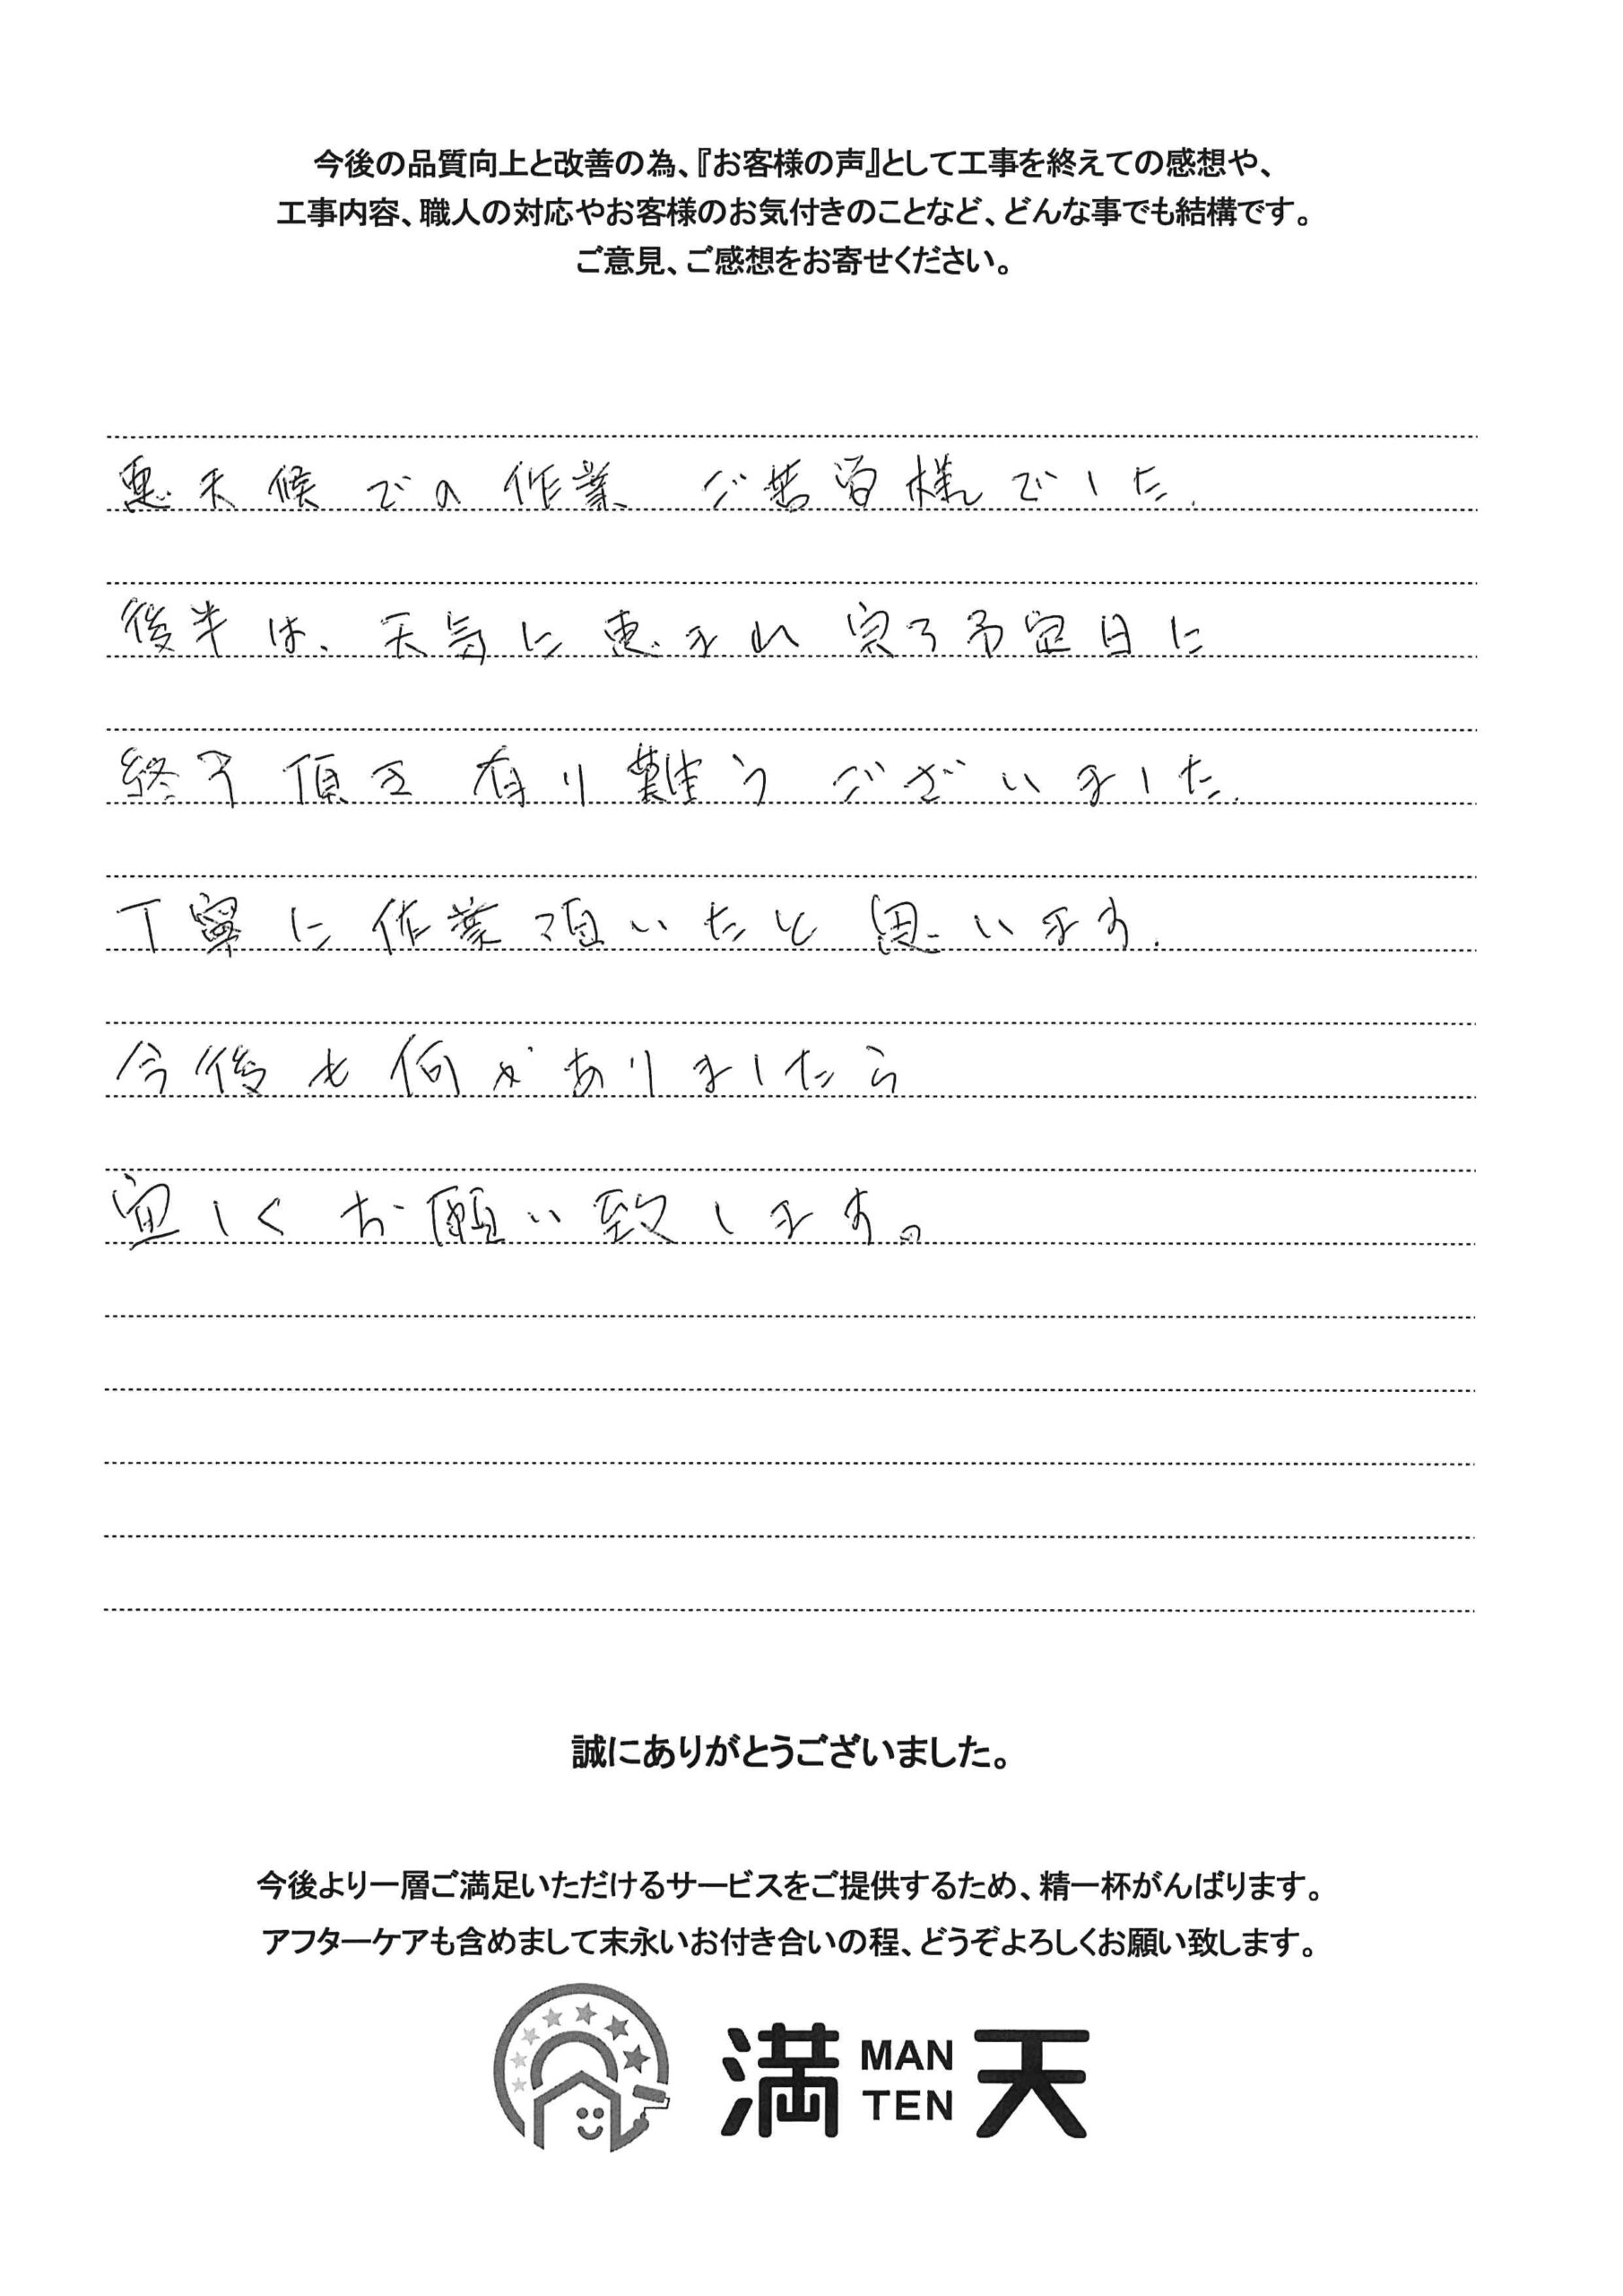 今後の品質向上と改善の為、『お客様の声』として工事を終えての感想や、
工事内容、職人の対応やお客様のお気付きのことなど、どんな事でも結構です。
ご意見、ご感想をお寄せください。
悪天候での作業 ご苦労様でした.
後半は、天気に恵まれ完了予定日に
終了頂き有り難うございました.
丁寧に作業頂いたと思います.
今後も何かありましたら
宜しくお願い致します。
誠にありがとうございました。
今後より一層ご満足いただけるサービスをご提供するため、精一杯がんばります。
アフターケアも含めまして末永いお付き合いの程、どうぞよろしくお願い致します。
満 MAN TEN 天